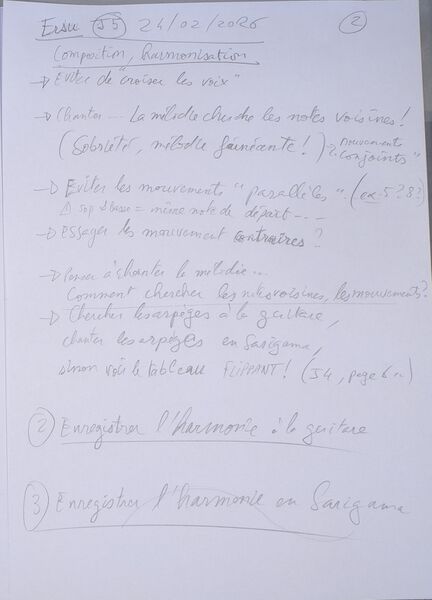 Ersu J5 24/02/2026 2
Composition, harmonisation
→ Éviter de "croiser les voix"
→ Chanter... La mélodie cherche les notes voisines!
(Sobriété, mélodie fainéante!) → mouvements
"conjoints"
→ Éviter les mouvements "parallèles". (ex: 5? 8?)
⚠ sop & basse = même note de départ...
→ Essayer les mouvement contraires?
→ Penser à chanter la mélodie...
Comment chercher les notes voisines, les mouvements?
→ Chercher les arpèges à la guitare,
chanter les arpèges en Sarigama,
sinon voir le tableau FLIPPANT! (J4, page 6
2 Enregistrer l'harmonie à la guitare
3 Enregistrer l'harmonie en Sarigama